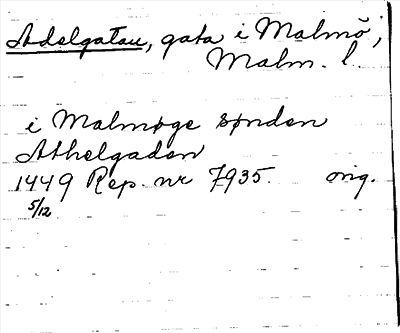 Adelgatan, gata i Malmö,
Malm. l.
i Malmøge sønden
Athelgaden
1449 Rep. nr 7935. orig.
5/12